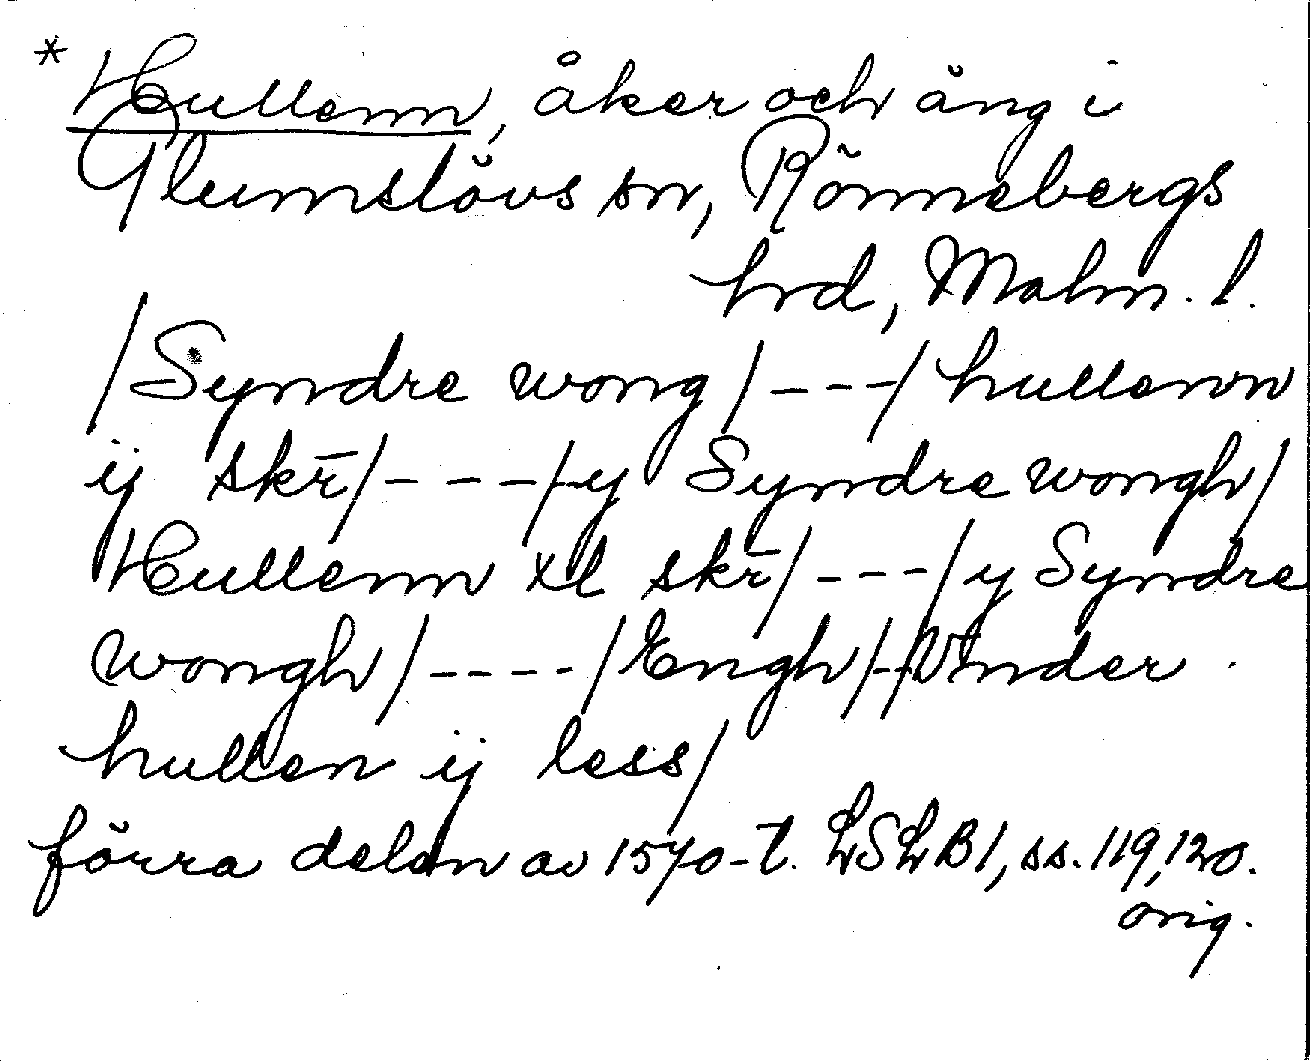 * Hullenn, åker och äng i
Glumslövs sn, Rönnebergs
hrd, Malm. l.
/Syndre wong/---/hullenn
ij skr̄/----/y Syndre wongh/
Hullenn xl skr̄/---/y Syndre
wongh/----/Engh/-/Vnder
hullen ij less/
förra delen av 1570-t. LSLB1, ss. 119, 120.
orig.